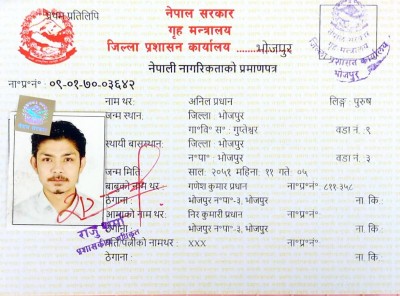 प्रथम प्रतिलिपि
नेपाल सरकार
गृह मन्त्रालय
जिल्ला प्रशासन कार्यालय ........भोजपुर
नेपाली नागरिकताको प्रमाणपत्र
ना॰प्र॰नं॰ ०९-०१-७०-०३६४२
नाम थर: अनिल प्रधान लिङ्ग पुरुष
जन्म स्थान: जिल्ला भोजपुर
गा॰वि॰ स॰ गुप्तेश्वर वडा नं. ९
स्थायी बासस्थान: जिल्ला भोजपुर
न॰पा॰ भोजपुर वडा नं. ३
जन्म मिति साल: २०५१ महिना. ११ गते ०५
बाबुको नाम थर: गणेश कुमार प्रधान ना॰प्र॰नं॰: ८११.३५८
ठेगाना: भोजपुर न॰पा॰-३, भोजपुर ना. कि:
आमाको नाम थर: निर कुमारी प्रधान ना॰प्र॰नं॰:
ठेगाना भोजपुर न॰पा॰-३, भोजपुर ना. कि:
पति/पत्नीको नामथर: xxx ना॰प्र॰नं॰:
ठेगाना: ना. कि:
राजु शर्मा
प्रशासकीय अधिकृत
नेपाल सरकार
गृह मन्त्रालय
जिल्ला प्रशासन कार्यालय
भोजपुर